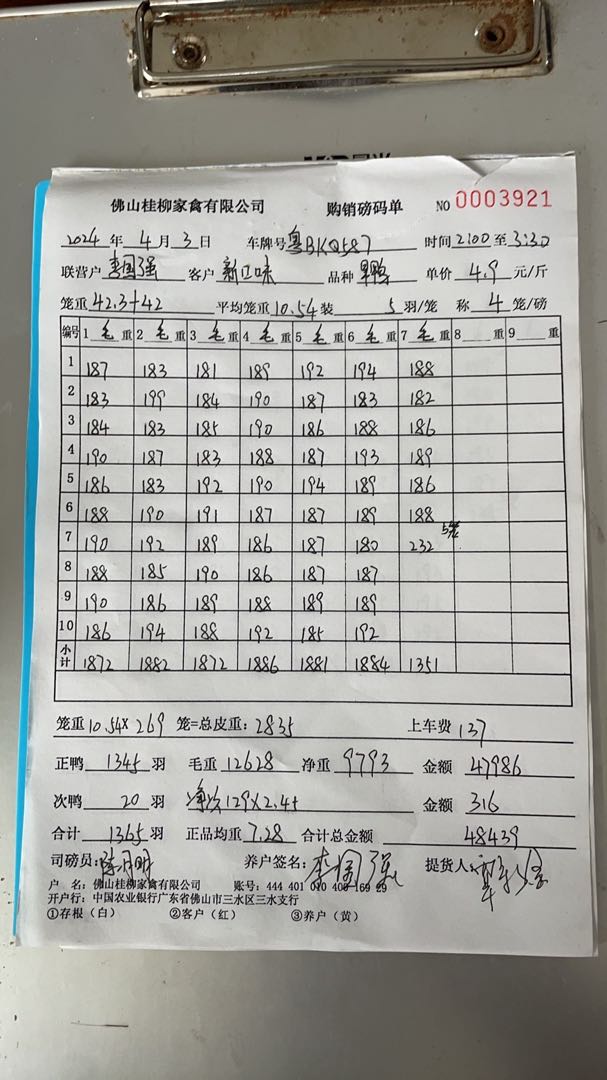 佛山桂柳家禽有限公司 购销磅码单 NO 0003921
2024 年 4 月 3 日 车牌号 粤BKQ587 时间 2:00 至 3:30
联营户 李国强 客户 新口味 品种 单价 4.9 元/斤
笼重 42.3+42 平均笼重 10.54 装 5 羽/笼 称 4 笼/磅
编号 1 毛 重 2 毛 重 3 毛 重 4 毛 重 5 毛 重 6 毛 重 7 毛 重 8 重 9 重
1 187 183 181 189 192 194 188
2 183 199 184 190 187 183 182
3 184 183 185 190 186 188 186
4 190 187 183 188 187 193 189
5 186 183 192 190 194 189 186
6 188 190 191 187 187 189 188
7 190 192 189 186 187 180 232 5笼
8 188 185 190 186 187 187
9 190 186 189 188 189 189
10 186 194 188 192 185 192
小计 1872 1882 1872 1886 1881 1884 1351
笼重 10.54× 269 笼=总皮重: 2835 上车费 137
正鸭 1345 羽 毛重 12628 净重 9793 金额 47986
次鸭 20 羽 129×2.45 金额 316
合计 1365 羽 正品均重 7.28 合计总金额 48439
司磅员: 养户签名: 李国强 提货人:
户 名: 佛山桂柳家禽有限公司 账号: 444 401 010 400 169 29
开户行: 中国农业银行广东省佛山市三水区三水支行
①存根（白） ②客户（红） ③养户（黄）